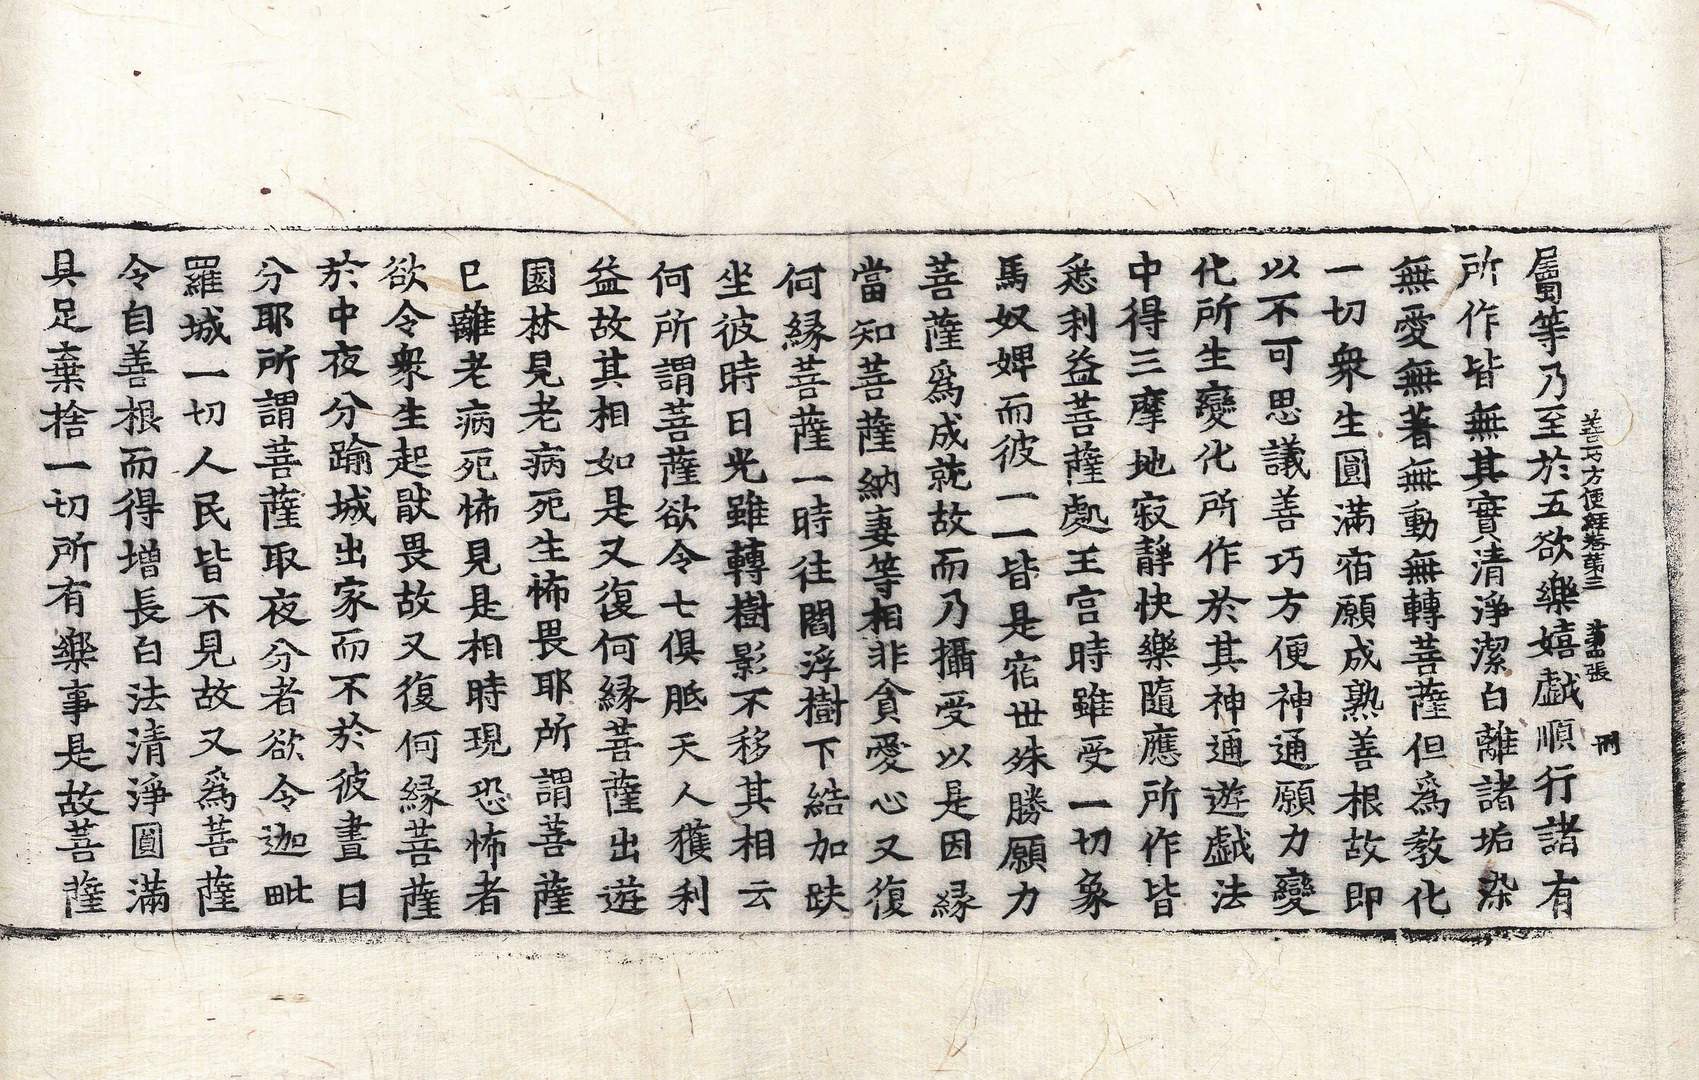 善巧方便經卷第三 第四張 刑
屬等乃至於五欲樂嬉戲順行諸有
所作皆無其實清淨潔白離諸垢染
無愛無著無動無轉菩薩但爲教化
一切衆生圓滿宿願成熟善根故即
以不可思議善巧方便神通願力變
化所生變化所作於其神通遊戲法
中得三摩地寂靜快樂隨應所作皆
悉利益菩薩處王宮時雖受一切象
馬奴婢而彼一一皆是宿世殊勝願力
菩薩爲成就故而乃攝受以是因緣
當知菩薩納妻等相非貪愛心又復
何緣菩薩一時往閻浮樹下結加趺
坐彼時日光雖轉樹影不移其相云
何所謂菩薩欲令七俱胝天人獲利
益故其相如是又復何緣菩薩出遊
園林見老病死生怖畏耶所謂菩薩
已離老病死怖見是相時現恐怖者
欲令衆生起猒畏故又復何緣菩薩
於中夜分踰城出家而不於彼晝日
分耶所謂菩薩取夜分者欲令迦毗
羅城一切人民皆不見故又爲菩薩
令自善根而得增長白法清淨圓滿
具足棄捨一切所有樂事是故菩薩